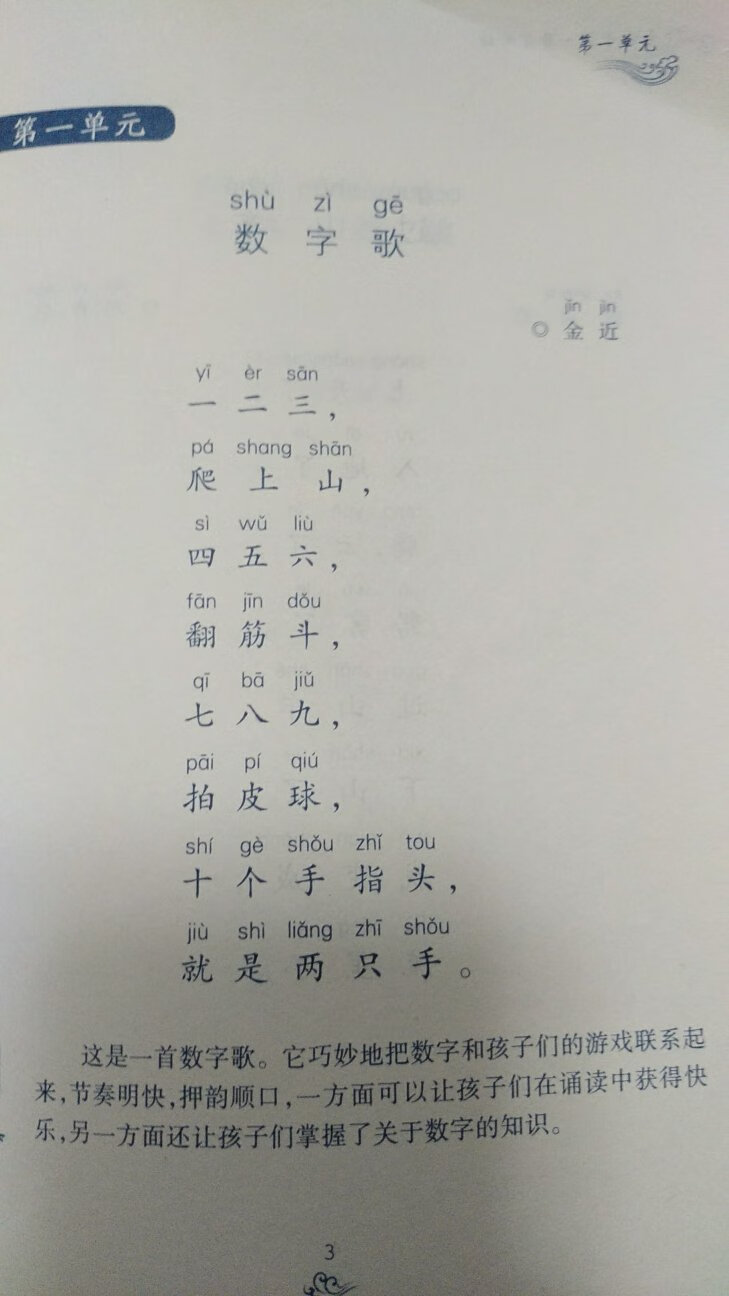 第一单元
第一单元
shù zì gē
数字歌
jīn jìn
◎金近
yī èr sān
一二三，
pá shang shān
爬上山，
sì wǔ liù
四五六，
fān jīn dǒu
翻筋斗，
qī bā jiǔ
七八九，
pāi pí qiú
拍皮球，
shí gè shǒu zhǐ tou
十个手指头，
jiù shì liǎng zhī shǒu
就是两只手。
这是一首数字歌。它巧妙地把数字和孩子们的游戏联系起
来，节奏明快，押韵顺口，一方面可以让孩子们在诵读中获得快
乐，另一方面还让孩子们掌握了关于数字的知识。
3